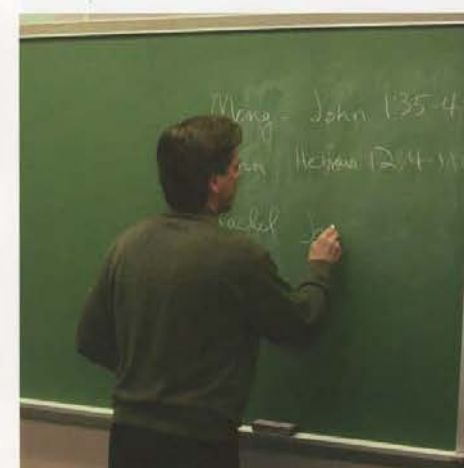 Mary - John 1:35-4
Hebrews 12:4-11
Rachel J